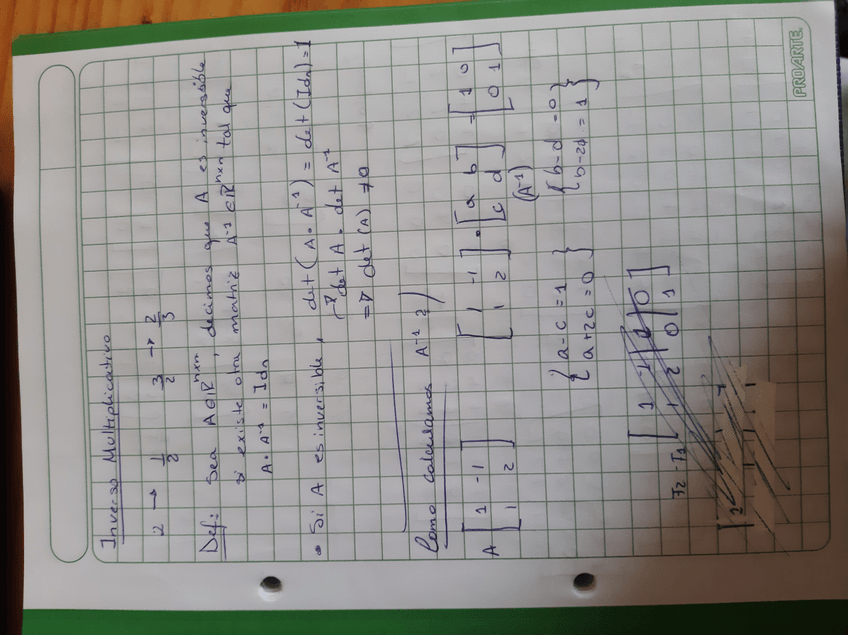 Inverso Multiplicativo
2 → 1/2   3/2 → 2/3
Def: Sea A∈ℝⁿˣⁿ, decimos que A es inversible
si existe otra matriz A⁻¹ ∈ℝⁿˣⁿ tal que
A • A⁻¹ = Idn
• Si A es inversible, det (A • A⁻¹) = det (Idn) = 1
det A • det A⁻¹
=> det (A) ≠ 0
Como calculamos A⁻¹ ?
A [1 -1] [1 -1] • [a b] = [1 0]
[1 2] [1 2] [c d] [0 1]
(A⁻¹)
{a - c = 1} {b - d = 0}
{a + 2c = 0} {b - 2d = 1}
[1 -1 | 1 | 0]
F2 - F1 [1 2 | 0 | 1]
PROARTE